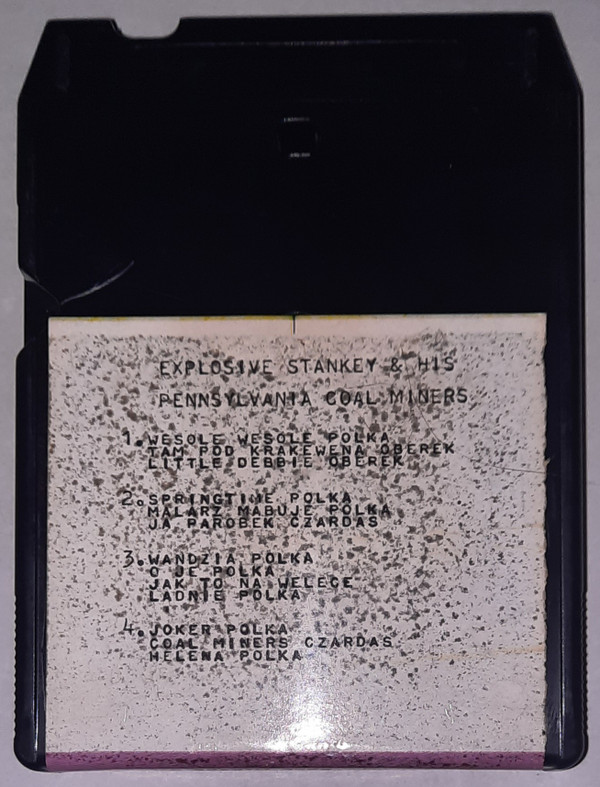 EXPLOSIVE STANKEY & HIS
PENNSYLVANIA COAL MINERS
1. WESOLE WESOLE POLKA
TAM POD KRAKEWENA OBEREK
LITTLE DEBBIE OBEREK
2. SPRINGTIME POLKA
MALARZ MABUJE POLKA
JA PAROBEK CZARDAS
3. WANDZIA POLKA
O JE POLKA
JAK TO NA WELECE
LADNIE POLKA
4. JOKER POLKA
COAL MINERS CZARDAS
HELENA POLKA